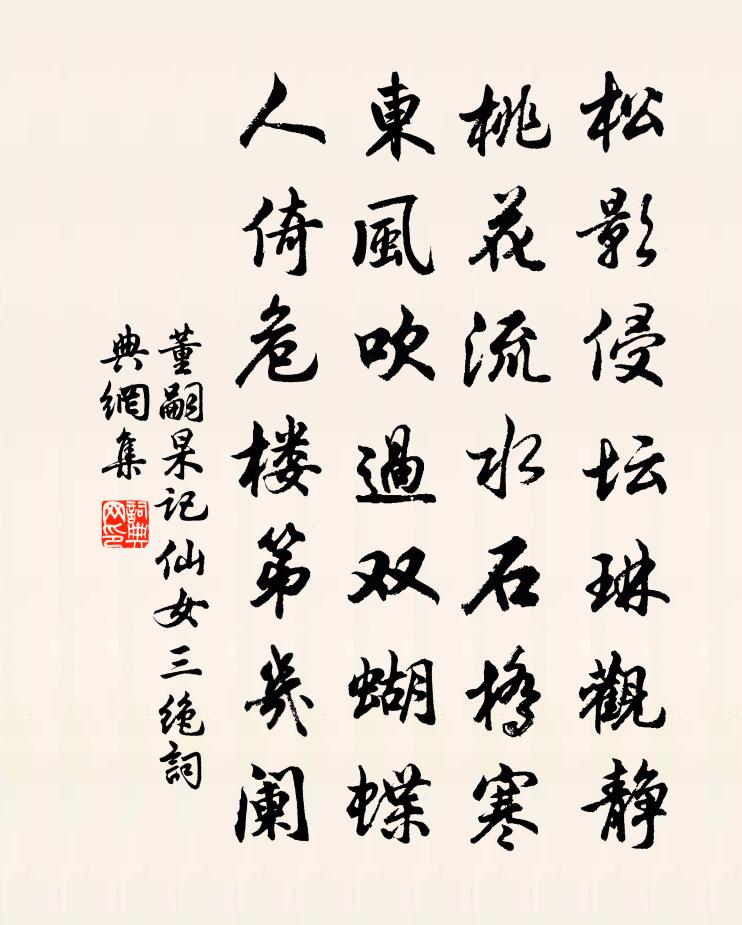 松影侵坛琳觀静
桃花流水石橋寒
東風吹過双蝴蝶
人倚危楼第幾阑
董嗣杲记仙女三绝詞
典網集
詞典網印